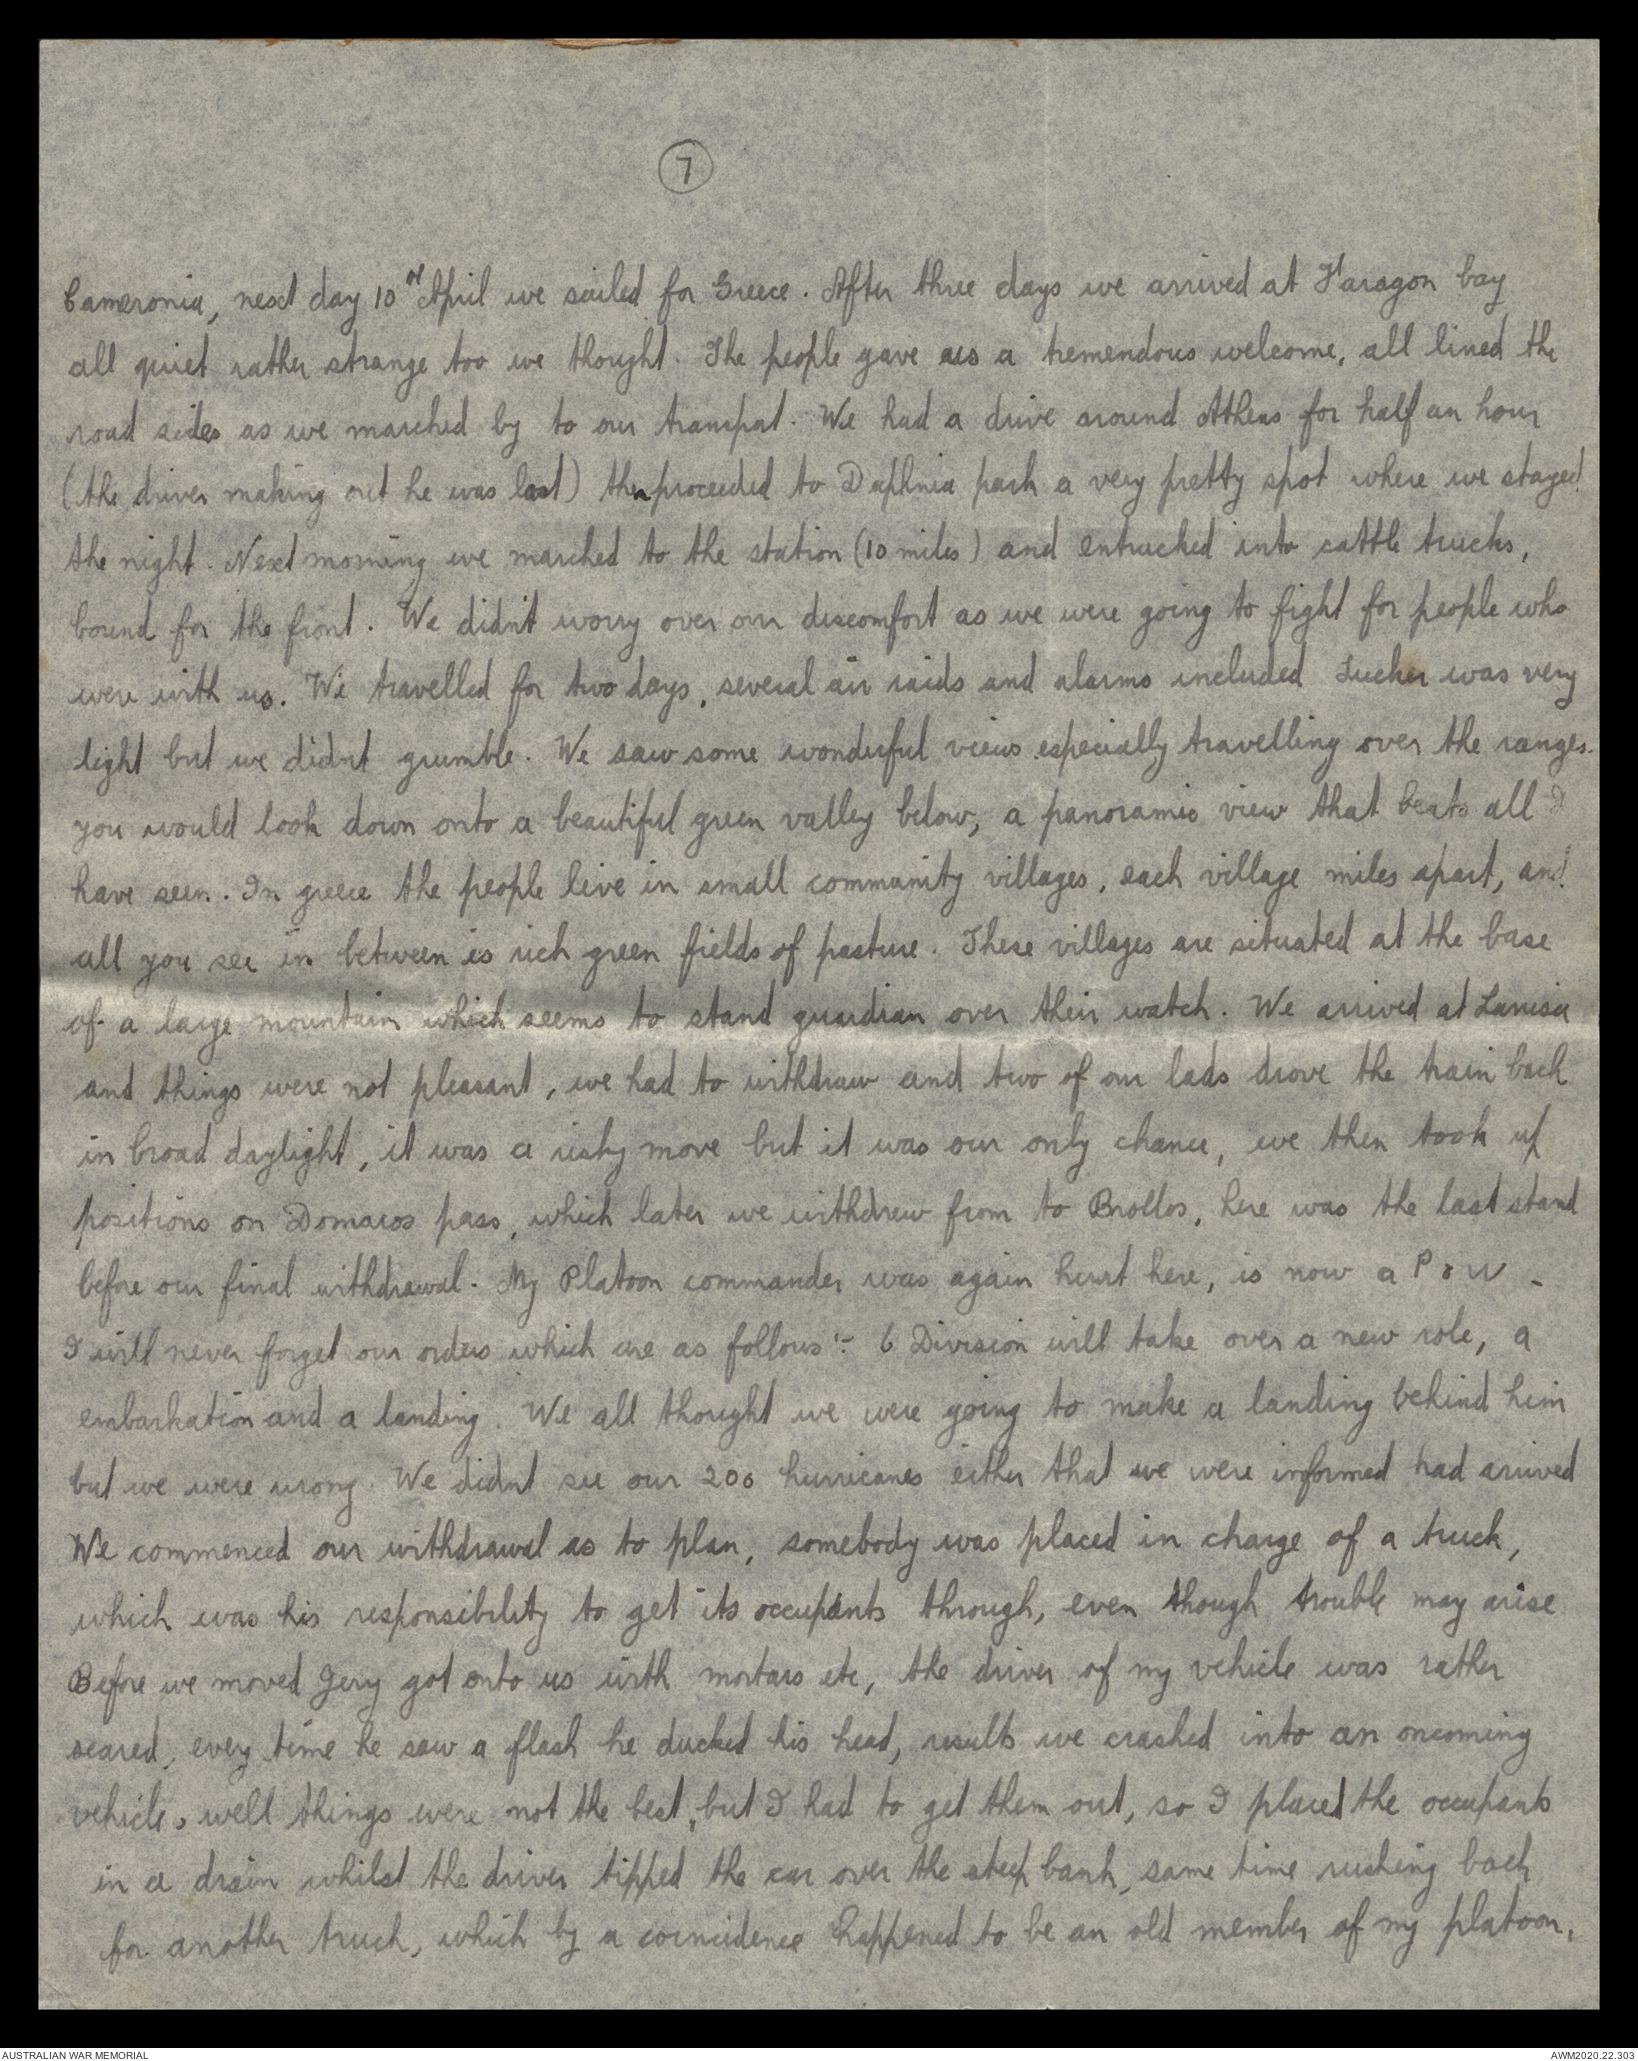 7
Cameronia, next day 10th April we sailed for Greece. After three days we arrived at Faragon bay
all quiet rather strange too we thought. The people gave us a tremendous welcome, all lined the
road sides as we marched by to our transport. We had a drive around Athens for half an hour
(the driver making out he was lost) then proceeded to Daphnia park a very pretty spot where we stayed
the night. Next morning we marched to the station (10 miles) and entrucked into cattle trucks,
bound for the front. We didn't worry over our discomfort as we were going to fight for people who
were with us. We travelled for two days, several air raids and alarms included Tucker was very
light but we didnt grumble. We saw some wonderful views especially travelling over the ranges.
you would look down onto a beautiful green valley below, a panoramic view that beats all I
have seen. In greece the people live in small community villages, each village miles apart, and
all you see in between is rich green fields of pasture. These villages are situated at the base
of a large mountain which seems to stand guardian over their watch. We arrived at Larrisa
and things were not pleasant, we had to withdraw and two of our lads drove the train back
in broad daylight, it was a risky move but it was our only chance, we then took up
positions on Domacos pass, which later we withdrew from to Brollos, here was the last stand
before our final withdrawal. My Platoon commander was again hurt here, is now a P o W -
I will never forget our orders which are as follows :- 6 Division will take over a new role, a
embarkation and a landing. We all thought we were going to make a landing behind him
but we were wrong. We didnt see our 200 hurricanes either that we were informed had arrived
We commenced our withdrawal as to plan, somebody was placed in charge of a truck,
which was his responsibility to get its occupants through, even though trouble may arise
Before we moved Jerry got onto us with mortars etc, the driver of my vehicle was rather
scared, every time he saw a flash he ducked his head, results we crashed into an oncoming
vehicle, well things were not the best, but I had to get them out, so I placed the occupants
in a drain whilst the driver tipped the car over the steep bank, same time rushing back
for another truck, which by a coincidence happened to be an old member of my platoon.
AUSTRALIAN WAR MEMORIAL
AWM2020.22.303